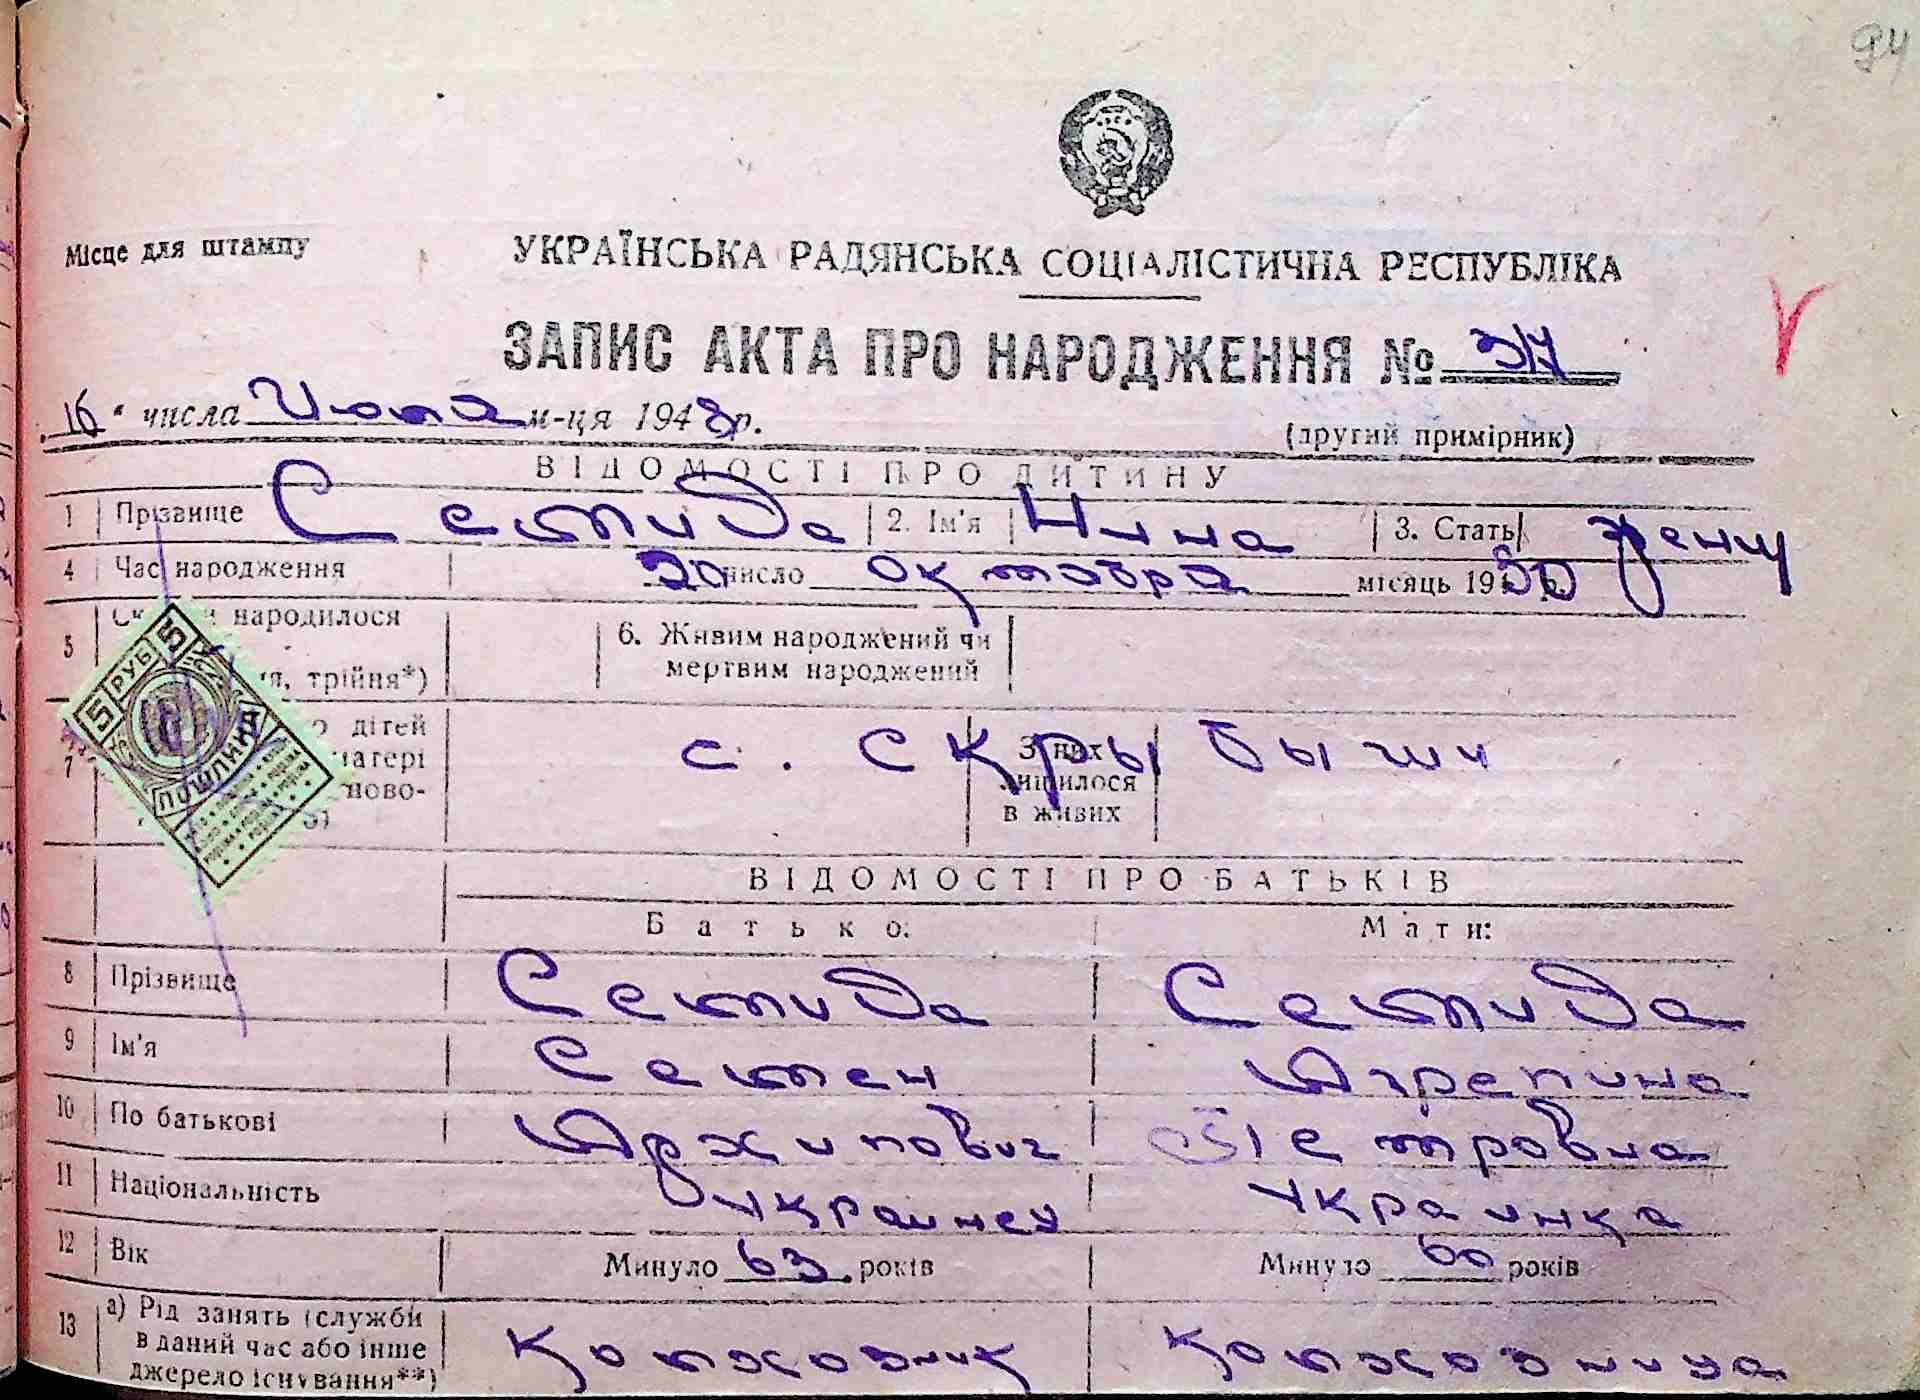 94
Місце для штампу
УКРАЇНСЬКА РАДЯНСЬКА СОЦІАЛІСТИЧНА РЕСПУБЛІКА
ЗАПИС АКТА ПРО НАРОДЖЕННЯ №
16 " числа Июля м-ця 1948 р.
(другий примірник)
ВІДОМОСТІ ПРО ДИТИНУ
1 Прізвище 2. Ім'я Нина 3. Стать женщ
4 Час народження 20 число октобра місяць 19
5 народилося
трійня*) 6. Живим народжений чи
мертвим народжений
7 дітей
матері
ново-
с. Скрыбыши
З них
лишилося
в живих
ВІДОМОСТІ ПРО БАТЬКІВ
Батько: Мати:
8 Прізвище
9 Ім'я Семен Агрепина
10 По батькові Архипович Петровна
11 Національність Украинец Украинка
12 Вік Минуло 63 років Минуло 60 років
13 а) Рід занять (служби
в даний час або інше
джерело існування**)
Колхозник Колхозница
5 РУБ 5
ПОШЛИНА